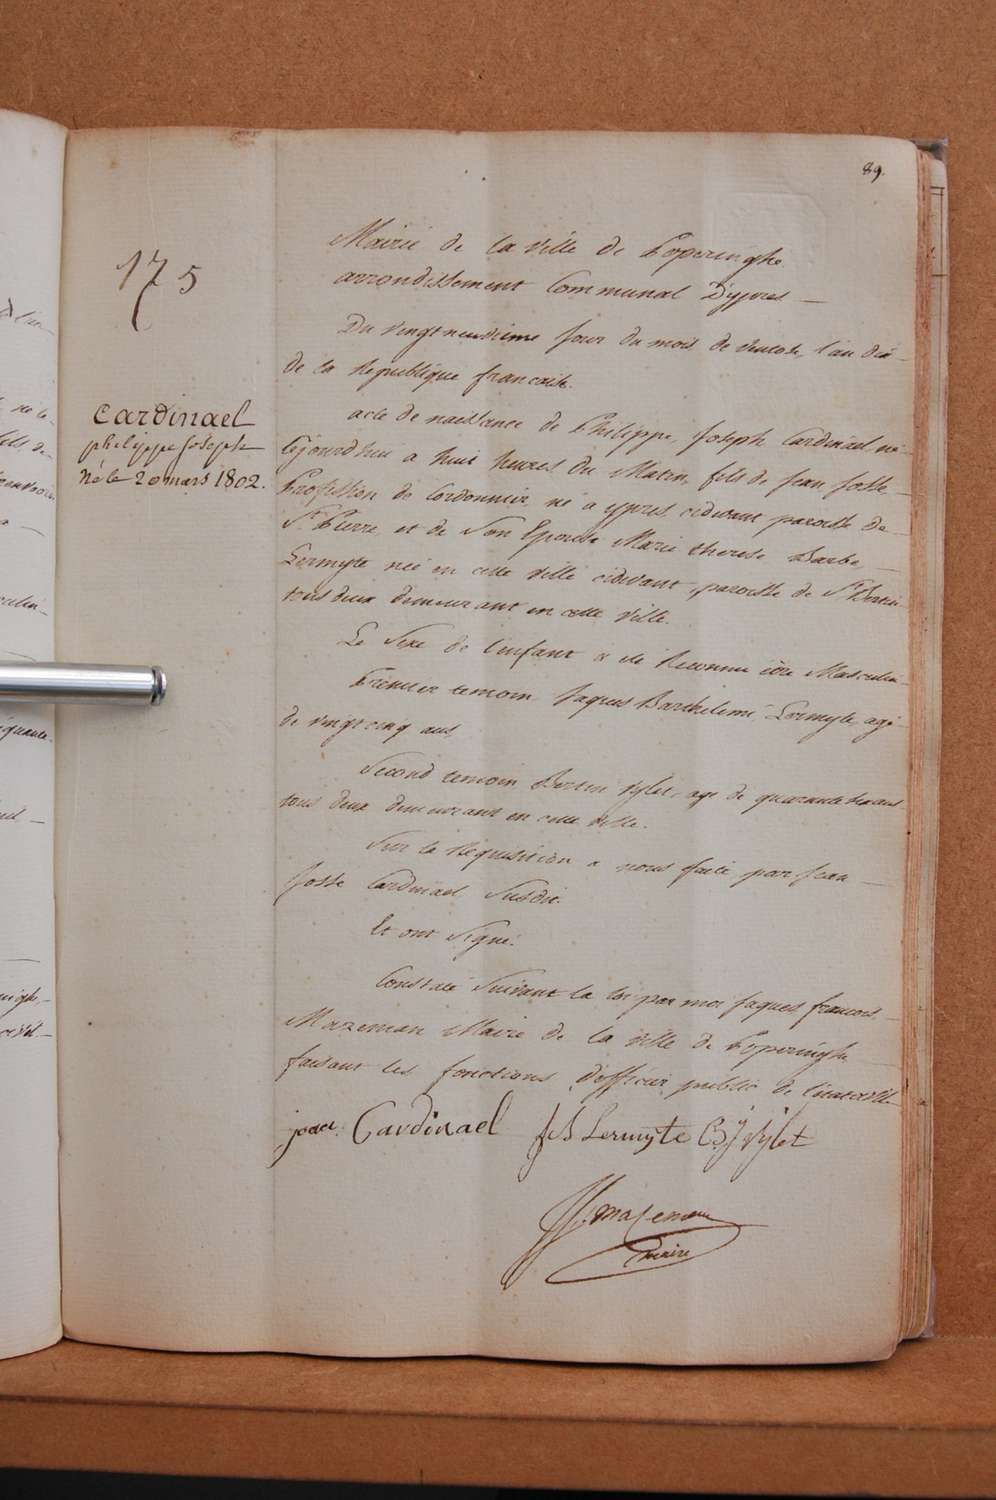 89.
175
Cardinael
philippe joseph
né le 20 mars 1802.
Mairie de la ville de Poperinghe
arrondissement Communal D'ypres —
Du vingt neuvieme jour du mois de ventose, l'an dix —
de la République francaise.
acte de naissance de Philippe, Joseph Cardinael, né
cejourdhui a huit heures du Matin, fils de Jean Josse
Profession de Cordonnier, né a ypres, cidevant paroisse de —
St. Pierre, et de Son Epouse Marie therese Barbe,
Lermyte née en cette ville cidevant, paroisse de St. Bertin
tous deux demeurant en cette ville.
Le Sexe de l'enfant a été Reconnu être Masculin
Premier temoin Jaques Barthelemi Lermyte, agé
de vingt cinq ans,
Second temoin Bertin Sylet, age de quarante
tous deux demeurant en cette ville.
Sur la Réquisition a nous faite par Jean —
Josse Cardinael, Susdit.
Et ont Signé.
Constaté Suivant la loi par moi Jaques francois
Mazeman Maire de la ville de Poperinghe
faisant les fonctions d'officier public de l'état civil
Cardinael JB Lermyte B. Sylet
Mazeman
maire